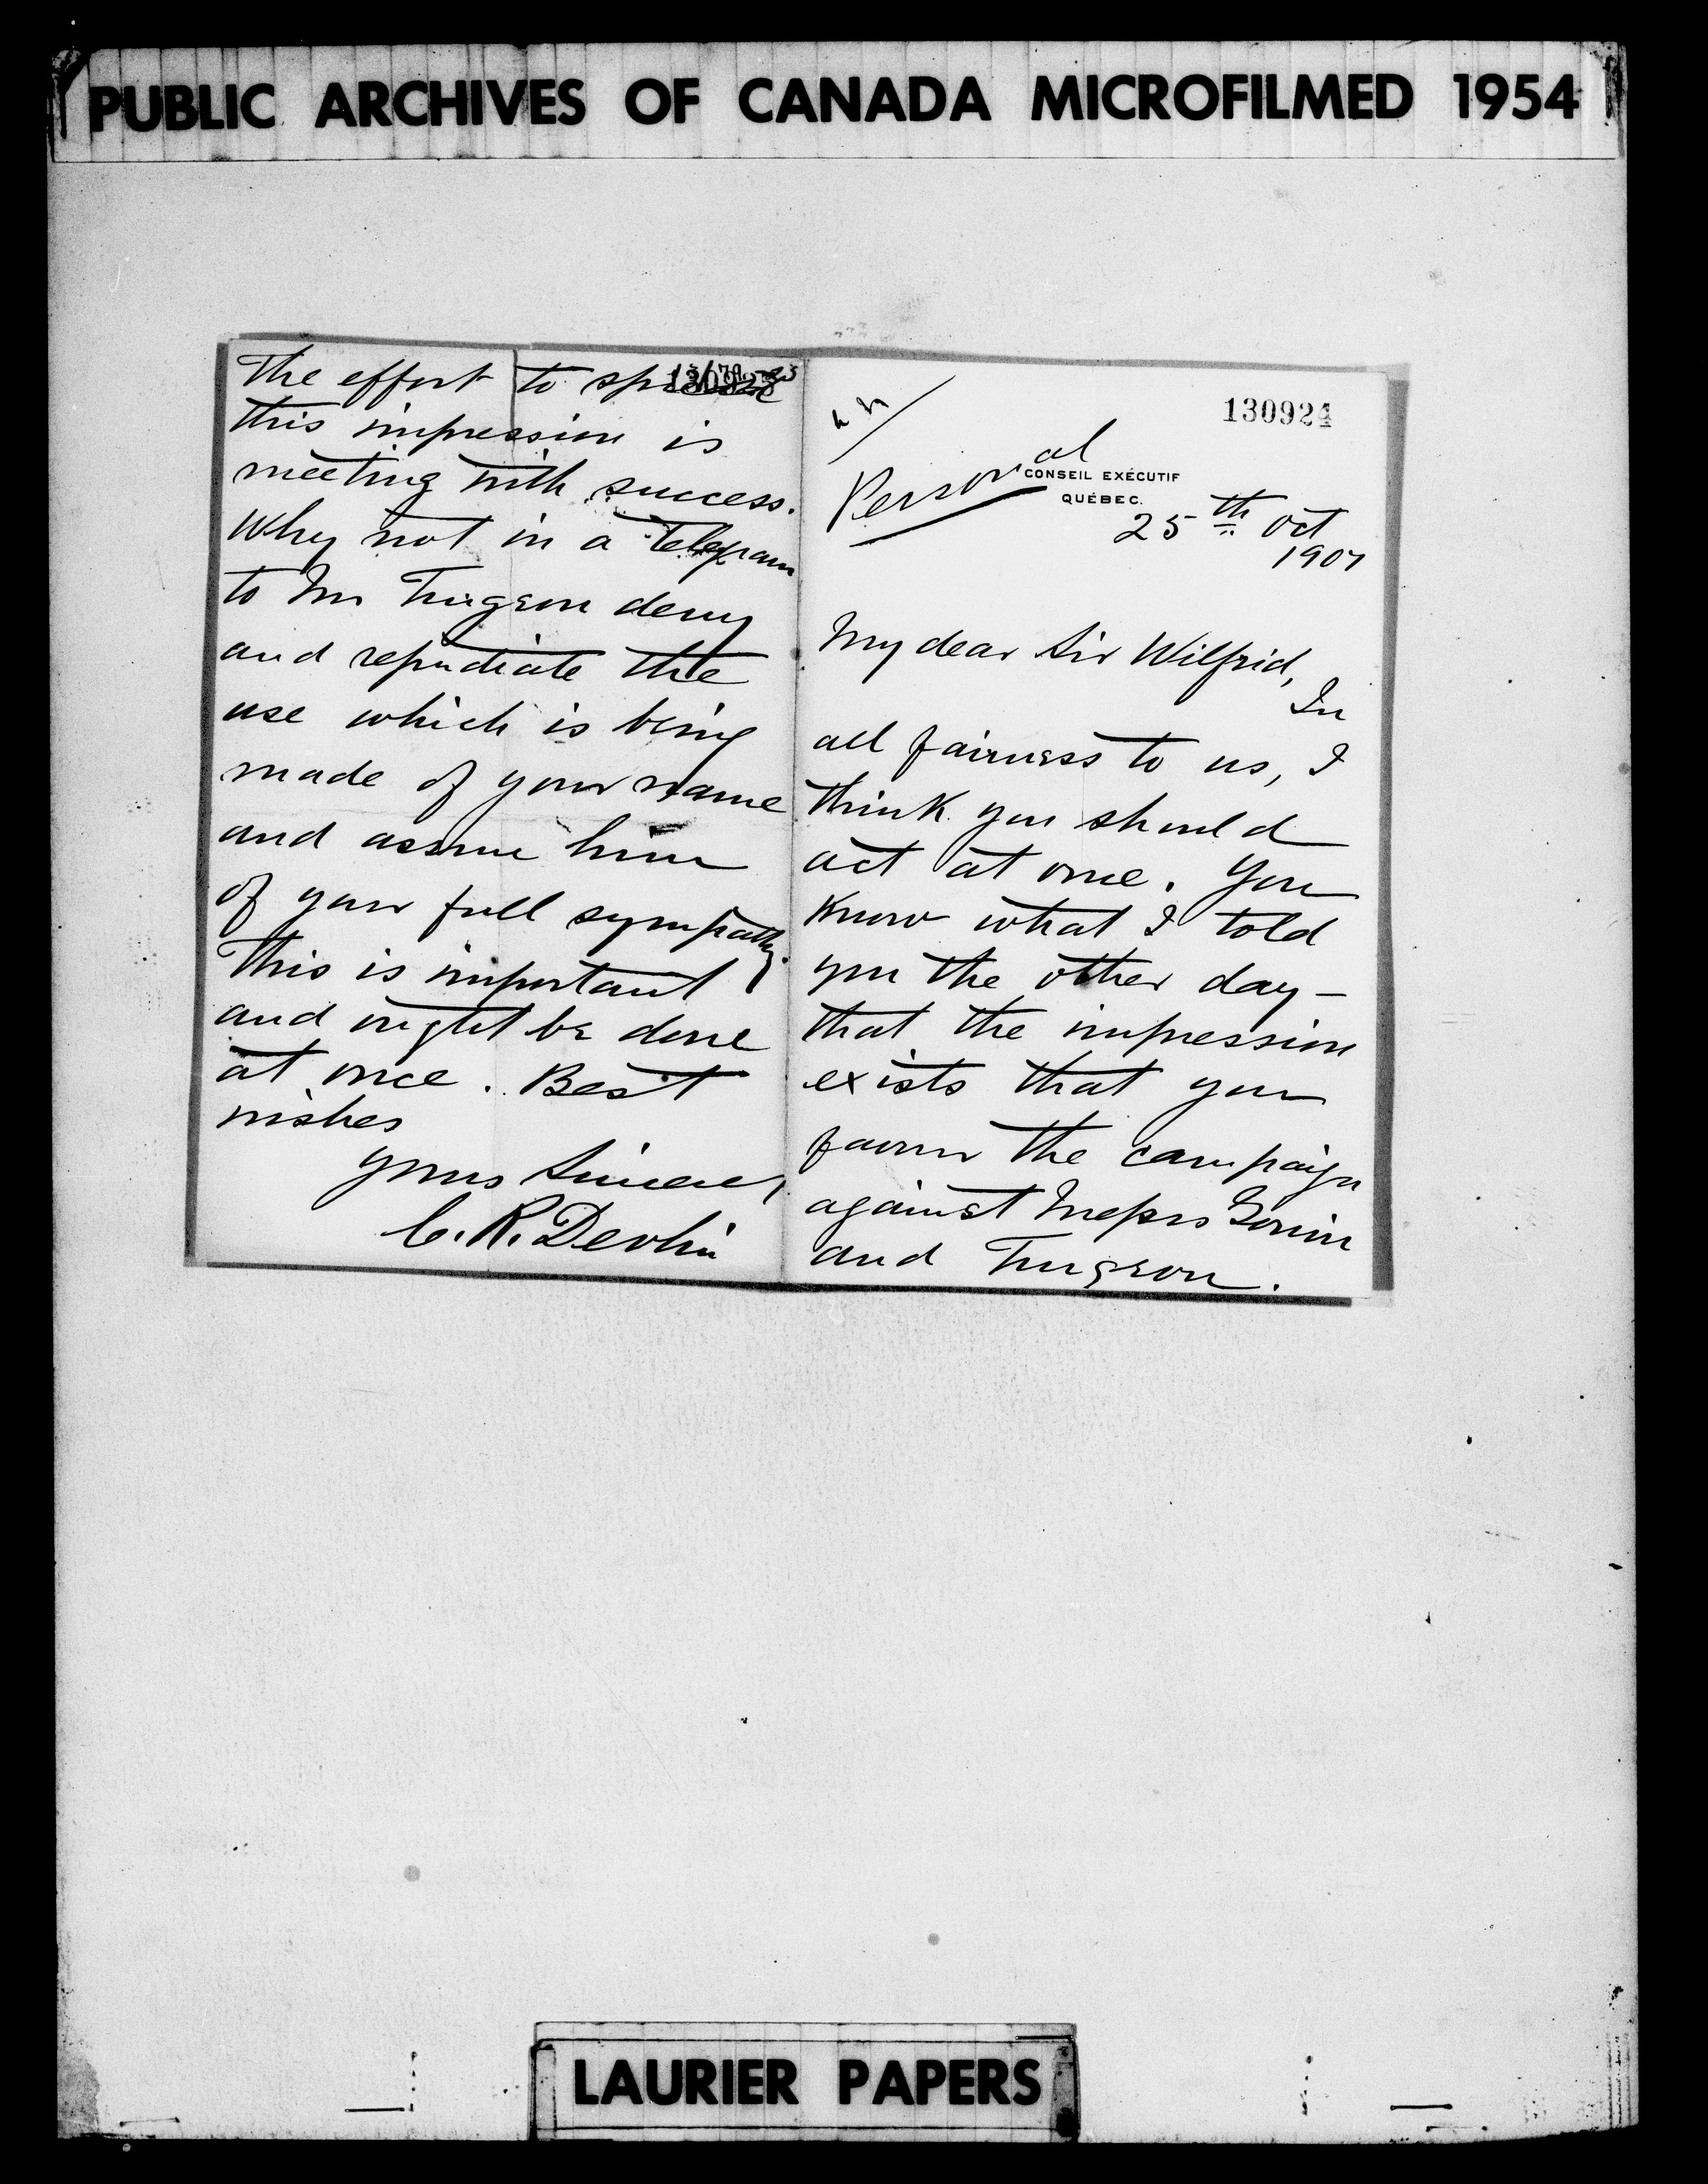 PUBLIC ARCHIVES OF CANADA MICROFILMED 1954
130924
Personal
CONSEIL EXÉCUTIF
QUÉBEC.
25th Oct
1907
My dear Sir Wilfrid,
In
all fairness to us, I
think you should
act at once. You
know what I told
you the other day –
that the impression
exists that you
favour the campaign
against Messrs Gouin
and Turgeon.
The effort to
this impression is
meeting with success.
Why not in a Telegram
to Mr Turgeon deny
and repudiate the
use which is being
made of your name
and assure him
of your full sympathy.
This is important
and ought be done
at once. Best
wishes
Yours Sincerely
C. R. Devlin
LAURIER PAPERS